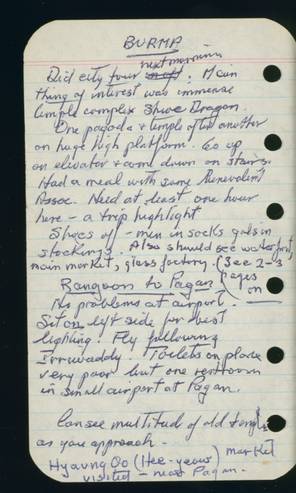 BURMA
next morning
Did city tour. Main
thing of interest was immense
temple complex Shwe Dragon.
One pagoda & temple after another
on huge high platform. Go up
on elevator & come down on stairs.
Had a meal with some Benevolent
Assoc. Need at least one hour
here - a trip highlight
Shoes off - men in socks gals in
stockings. Also should see waterfront,
main market, glass factory. (See 2-3
pages
Rangoon to Pagan
on
No problems at airport.
Sit on left side for best
lighting. Fly following
Irrawaddy. Toilets on plane
very poor but one restroom
in small airport at Pagan.
Can see multitude of old temples
as you approach.
Nyaung Oo (Hee-yaung) market
visited - near Pagan.